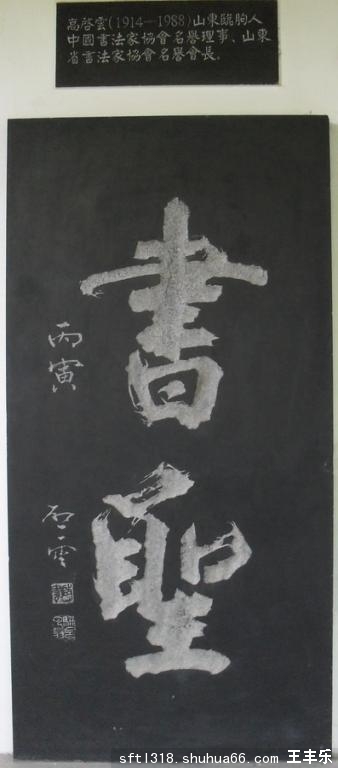 高啓雲(1914—1988)山東臨朐人
中國書法家協會名譽理事、山東
省書法家協會名譽會長。
書聖
丙寅
启云
sftl318.shuhua66.com 王丰乐